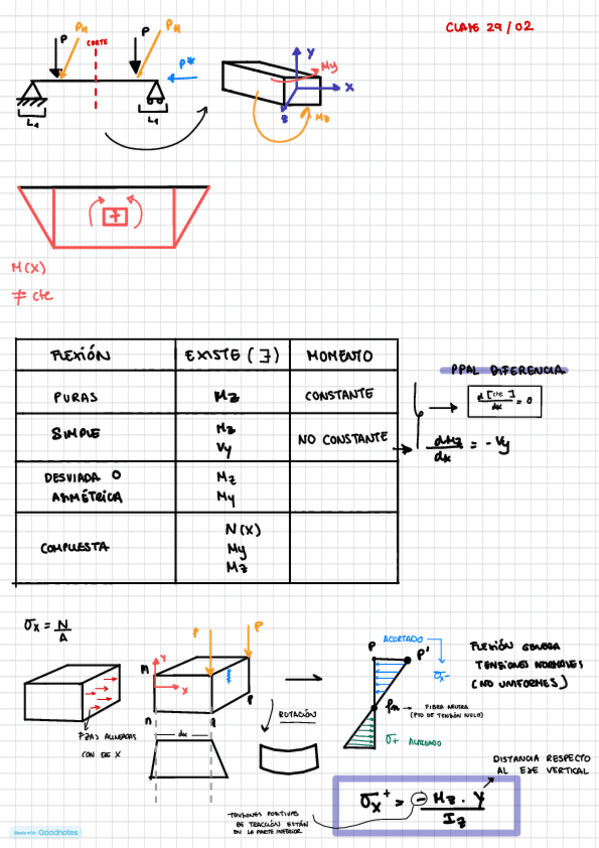 CLASE 29/02
P
PH
CORTE
P
PH
P*
L1
L1
Y
My
X
Z
Mz
+
M(X)
≠ cte
FLEXIÓN
EXISTE (∃)
MOMENTO
PURAS
Mz
CONSTANTE
SIMPLE
Mz
Vy
NO CONSTANTE
DESVIADA O
ASIMÉTRICA
Mz
My
COMPUESTA
N(X)
My
Mz
PPAL DIFERENCIA
d[cte]/dx = 0
dMz/dx = -Vy
σx = N/A
FZAS ALINEADAS
CON EJE X
P
P
M
Y
X
n
q
P
dx
ROTACIÓN
P
ACORTADO
P'
σx-
fn
FIBRA NEUTRA
(PTO DE TENSIÓN NULO)
σ+ ALARGADO
FLEXIÓN GENERA
TENSIONES NORMALES
(NO UNIFORMES)
DISTANCIA RESPECTO
AL EJE VERTICAL
σx+ = - Mz . Y / Iz
TENSIONES POSITIVAS
DE TRACCIÓN ESTÁN
EN LA PARTE INFERIOR
Goodnotes